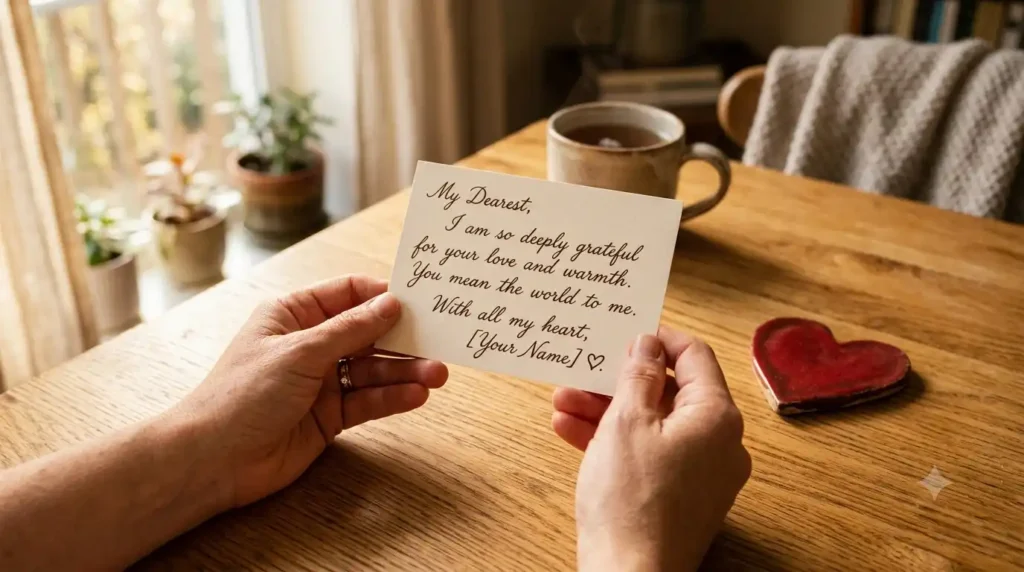 My Dearest,
I am so deeply grateful
for your love and warmth.
You mean the world to me.
With all my heart,
[Your Name] ♡.